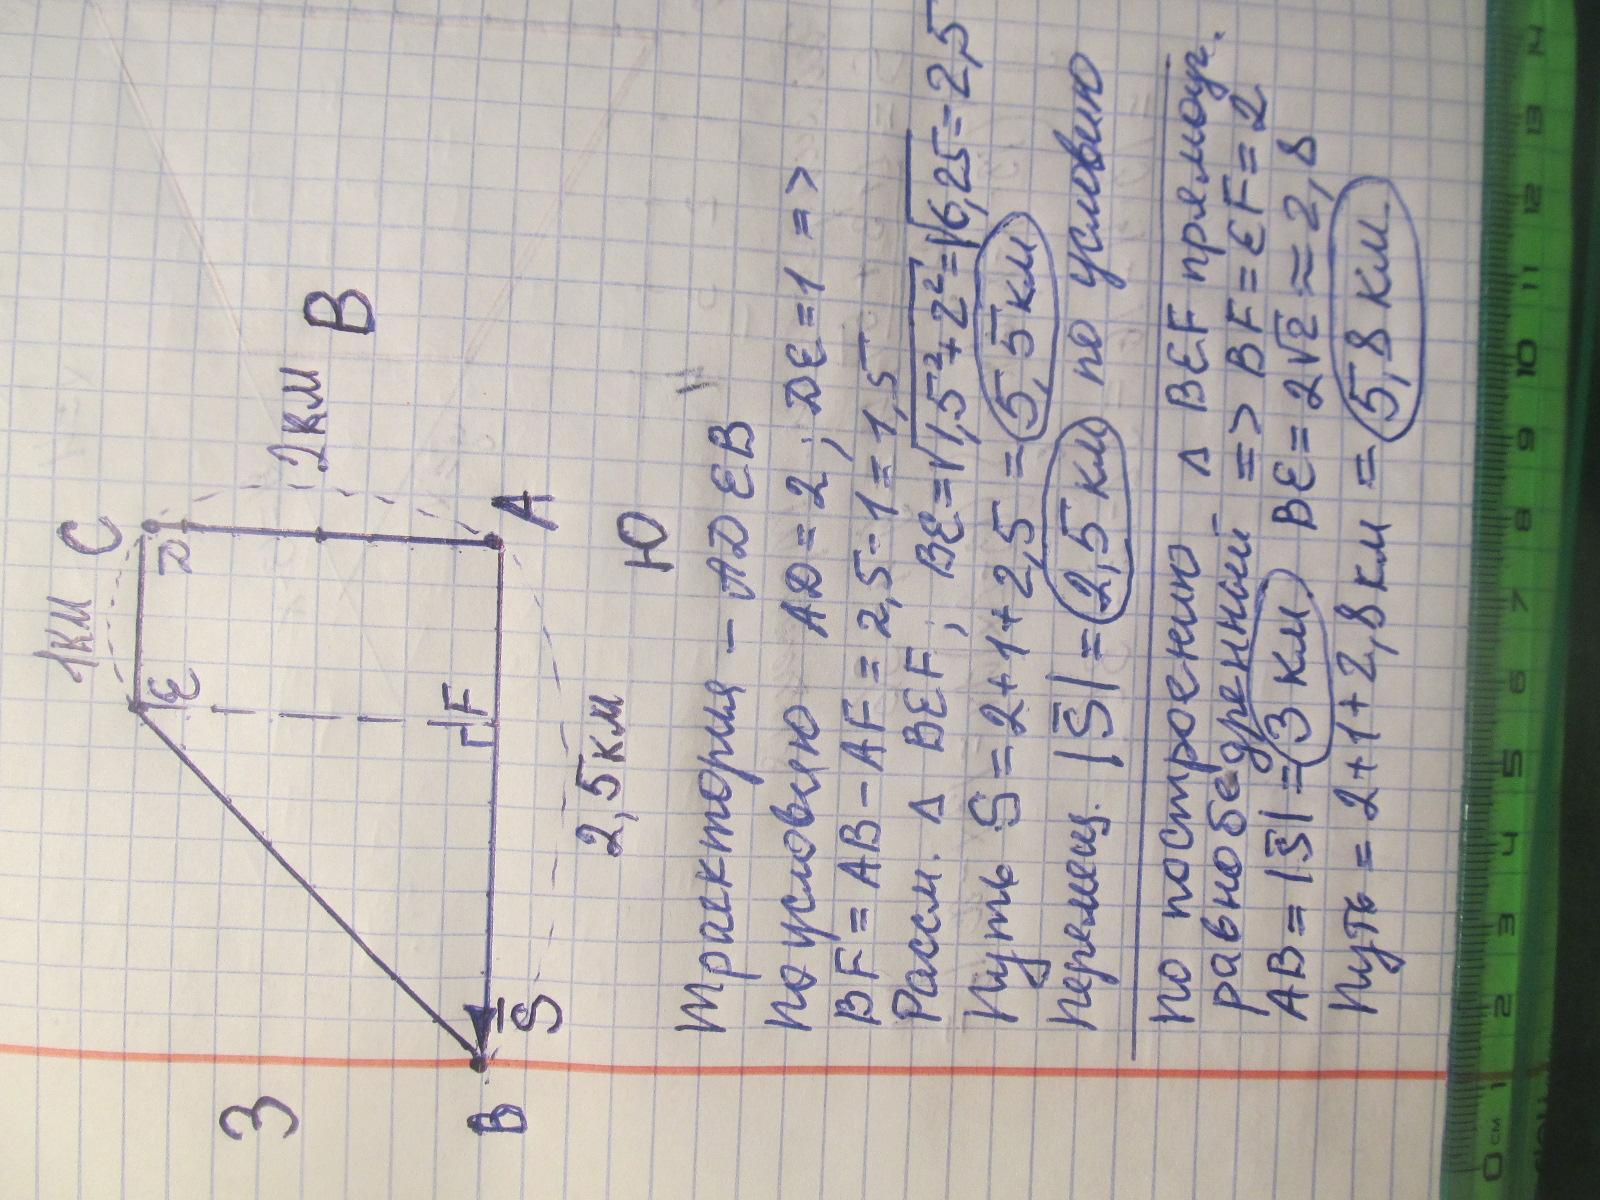 С
1км
D
Е
2км
З
В
F
A
B
S̅
2,5км
Ю
Траектория – ADEB
по условию AD=2; DE=1 =>
BF=AB-AF=2,5-1=1,5
Рассм. Δ BEF; BE=√1,5²+2²=√6,25=2,5
Путь S=2+1+2,5=5,5км
перемещ. |S̅|=2,5км по условию
по построению Δ BEF прямоуг.
равнобедренный => BF=EF=2
AB=|S̅|=3км BE=2√2≈2,8
Путь=2+1+2,8км=5,8км.
0 см 1 2 3 4 5 6 7 8 9 10 11 12 13 14